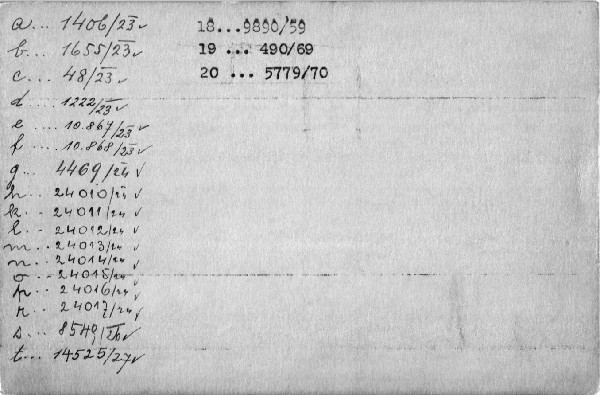 a... 1406/23 ✓
b... 1655/23 ✓
c... 48/23 ✓
d.... 1222/23 ✓
e .... 10.867/23 ✓
f .... 10.868/23 ✓
g... 4469/24 ✓
h... 24010/24 ✓
k... 24011/24 ✓
l... 24012/24 ✓
m... 24013/24 ✓
n... 24014/24 ✓
o... 24015/24 ✓
p... 24016/24 ✓
r... 24017/24 ✓
s... 8549/26 ✓
t... 14525/27 ✓
18...9890/59
19 ... 490/69
20 ... 5779/70